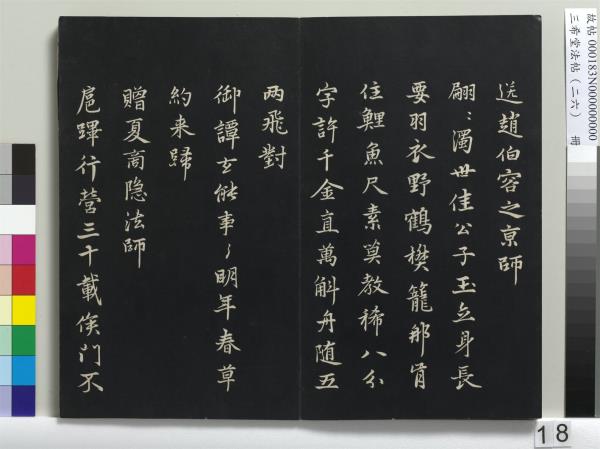 故帖 000183N000000000
三希堂法帖(二六) 冊
送趙伯容之亰師
翩〻濁世佳公子玉立身長
要羽衣野鶴樊籠那肯
住鯉魚尺素莫教稀八分
字許千金直萬斛舟随五
两飛對
御譚玄能事了明年春草
約来歸
贈夏商隐法師
扈蹕行營三十載侯門不
18